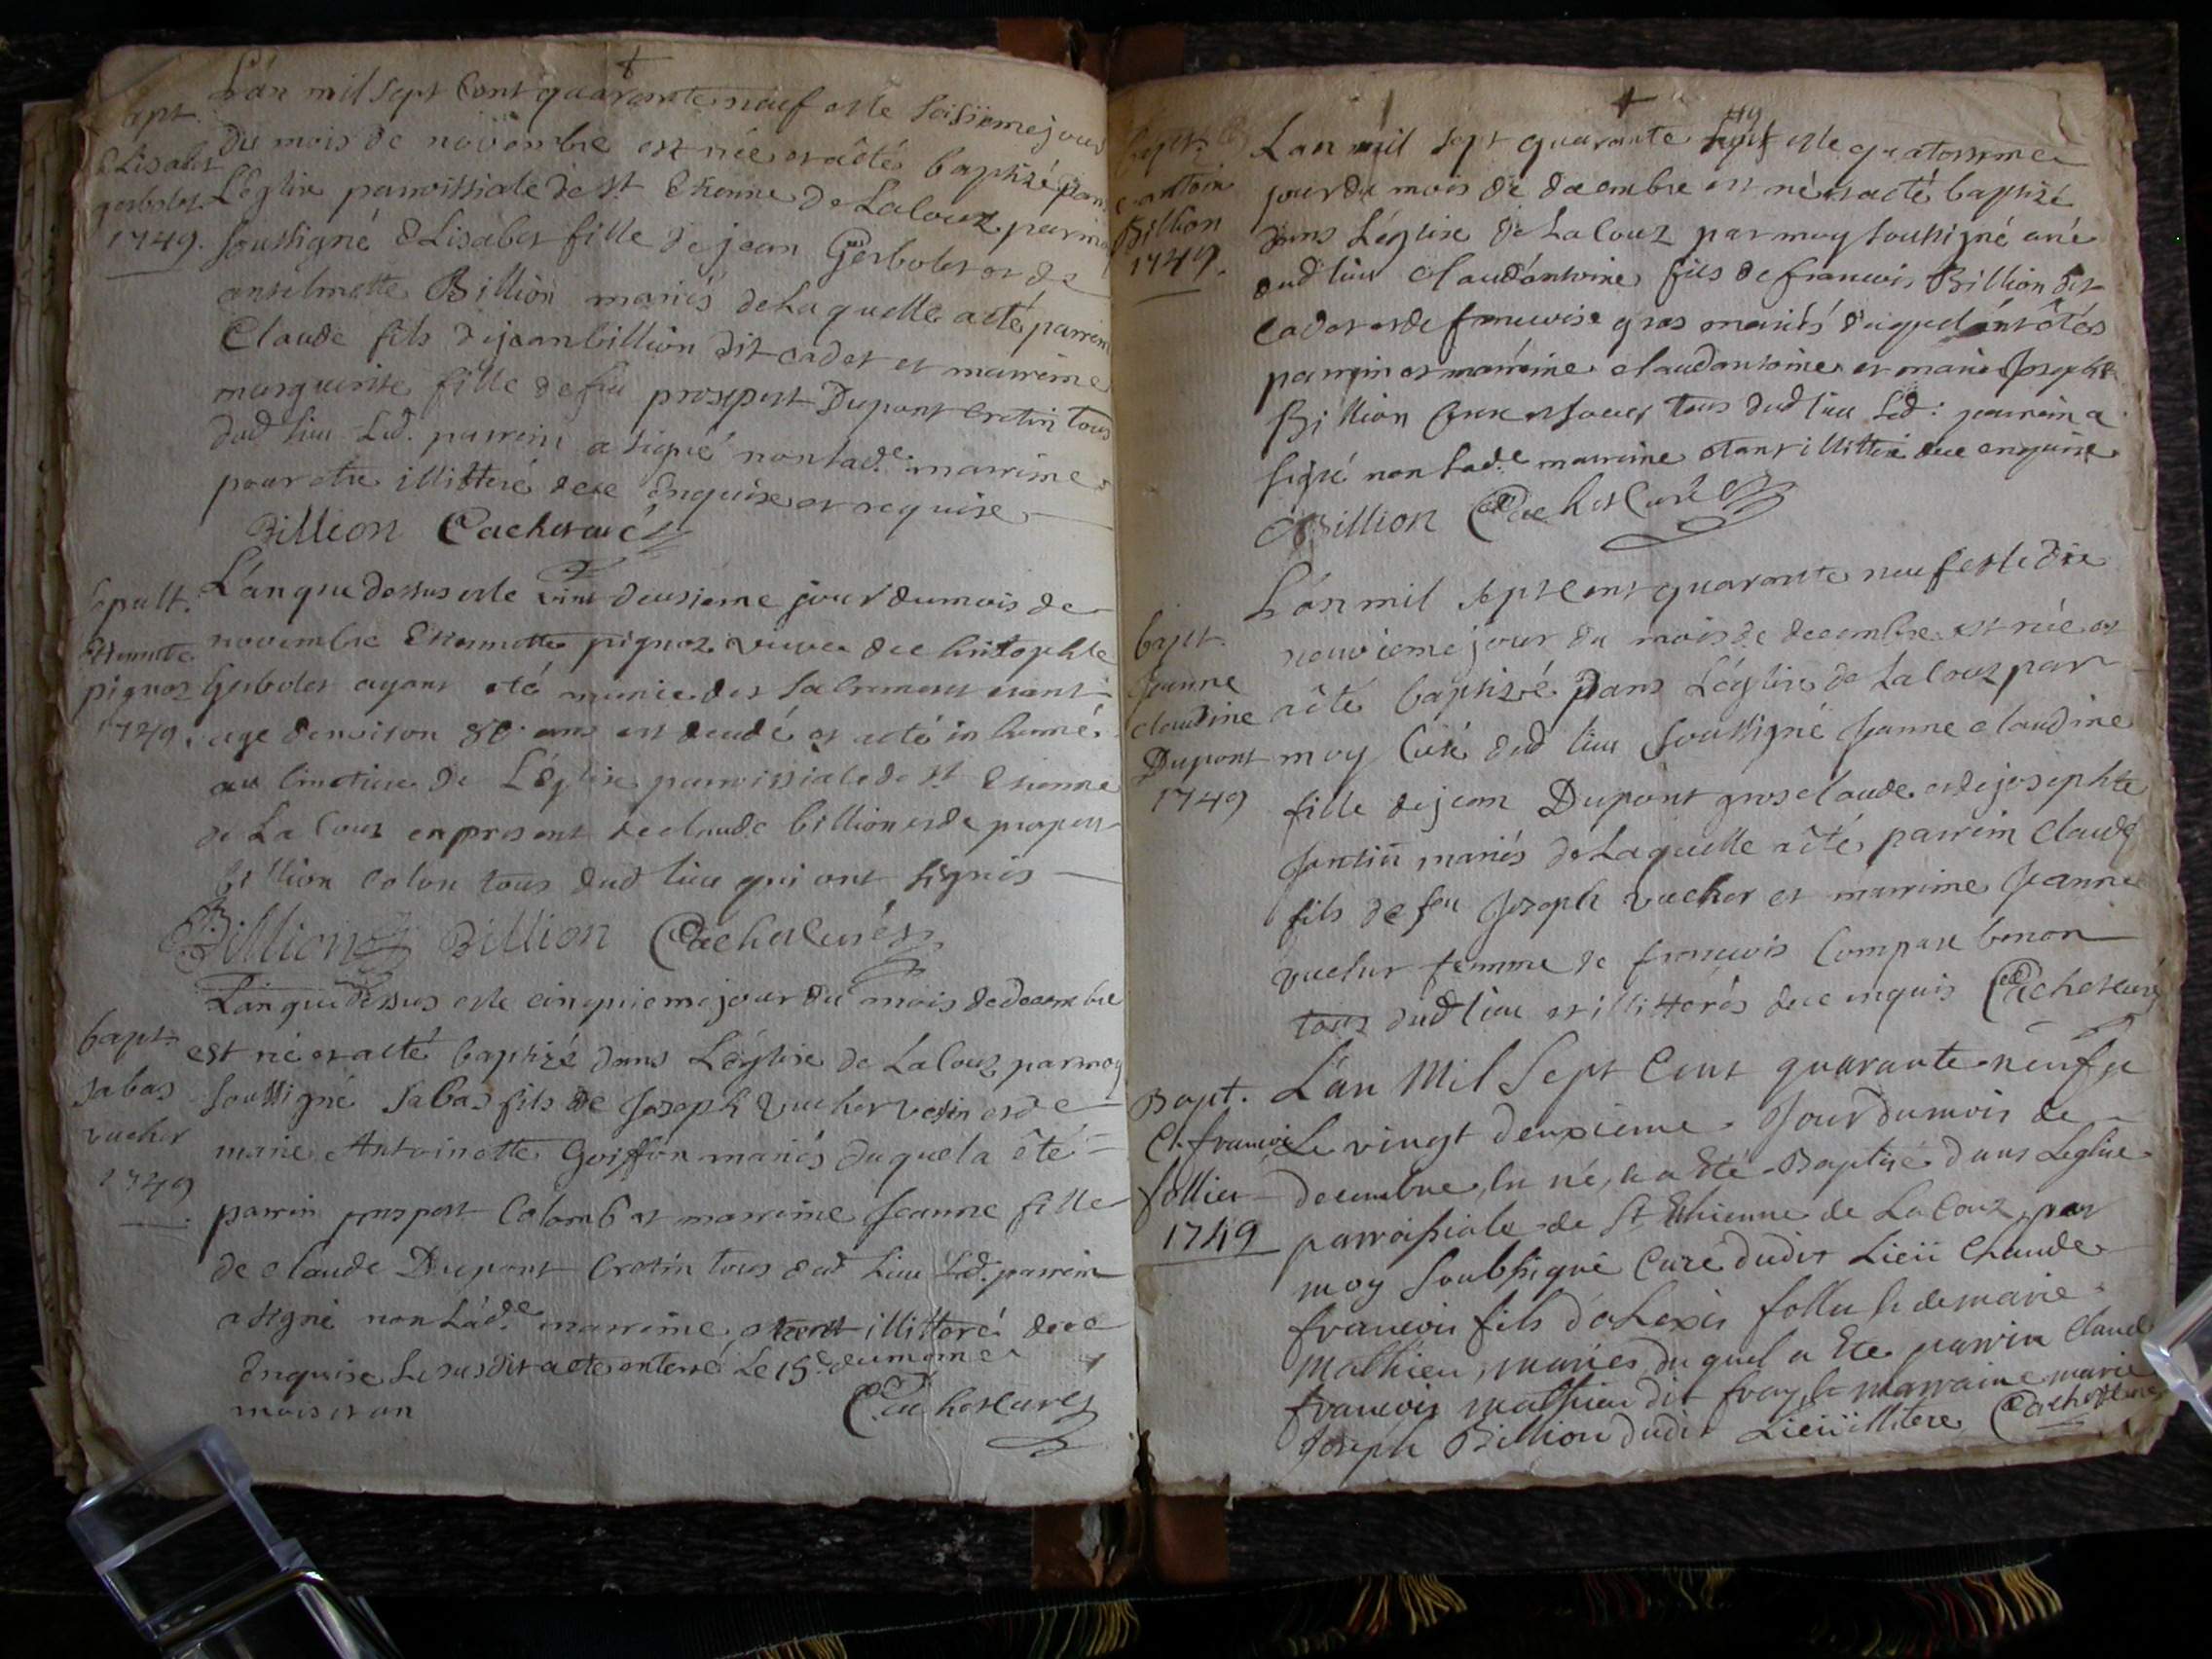 L'an mil sept cent quarante neuf et le saisieme jour
du mois de novembre est née et a été baptizé dans
L'église parroissiale de St Etienne de Lalouz par moy
soussigné Elisabet fille de jean Gerbolet et de
anselmette Billion mariés de Laquelle a eté parrein
Claude fils de jean billion dit cadet et marreine
marguerite fille de feu prospert Dupont Cretin tous
dud lieu Led. parrein a signé non lad.e marreine
pour etre illitteré de ce enquise et requise
Billion Cachet curé
bapt.
Elisabet
gerbolet
1749.
L'an que dessus et le vint deusieme jour du mois de
novembre Etiennette pignoz veuve de Christophle
Gerbolet ayant eté munie des sacrements etant
age d'environ 80 ans est decedé et a eté inhumé
au Cimetiere de L'église parroissiale de St Etienne
de La Louz en present de claude billion et de prospert
billion Colon tous dud lieu qui ont signés
Billion Billion Cachet curé
sepult.
Etiennette
pignoz
1749.
L'an que dessus et le cinquieme jour du mois de decembre
est né et a eté baptizé dans L'église de Lalouz par moy
soussigné Sabas fils de Joseph Vucher vesin et de
marie Antoinette Goiffon mariés duquel a été
parrein prospert Colomb et marreine Jeanne fille
de claude Dupont Cretin tous dud lieu Led. parrein
a signé non Lad.e marreine etant illitteré de ce
enquise Le susdit a ete enterré Le 15e du meme
mois et an
Cachet curé
bapt.
Sabas
vucher
1749
L'an mil sept quarante neuf 49 et le quatorsieme
jour du mois de decembre est né et a eté baptizé
dans L'église de La Louz par moy soussigné curé
dud lieu Claud'antoine fils de francois Billion dit
Cadet et de francoise gros mariés duquel ont étés
parrein et marreine claud antoine et marie Josephte
Billion frere et soeur tous dud lieu Led: parrein a
signé non Lad.e marreine etant illitteré de ce enquise
Billion Cachet Curé
bapt.
antoin
Billion
1749.
L'an mil sept cent quarante neuf et le dix
neuvieme jour du mois de decembre est née et
a été baptizé dans L'église de La louz par
moy Curé dud lieu soussigné Jeanne claudine
fille de jean Dupont gros claude et de josephte
Jantin mariés de Laquelle a été parrein Claude
fils de feu Joseph vucher et marreine Jeanne
vucher femme de francois Compare benon
tous dud lieu et illitterés de ce enquis Cachet curé
bapt.
Jeanne
claudine
Dupont
1749
L'an Mil Sept Cent quarante-neuf &
Le vingt deuxieme Jour du mois de
decembre, est né, & a Eté Baptisé dans L'eglise
parroissiale de St Ethienne de La Louz, par
moy Soubsigné Curé dudit Lieü Claude
francois fils d'alexis follier & de marie
Mathieu, mariés, du quel a Eté parrin Claude
francois mathieu dit fray & marraine marie
Joseph Billion dudit Lieü illitere Cachet curé
Bapt.
Cl. francois
follier
1749